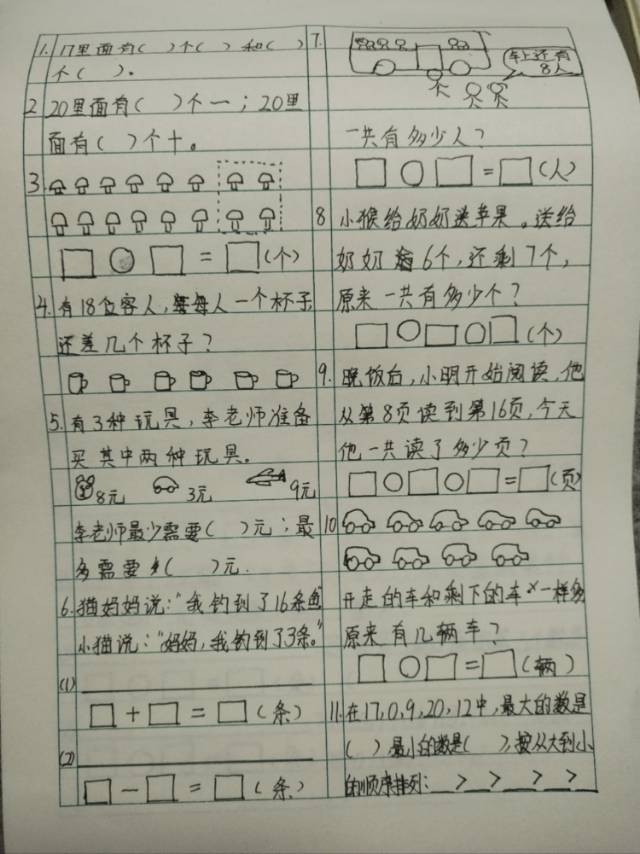 1. 17里面有( )个( )和( )
个( )。
2 20里面有( )个一;20里
面有( )个十。
3.
□○□=□(个)
4. 有18位客人,每人一个杯子,
还差几个杯子?
5. 有3种玩具,李老师准备
买其中两种玩具。
8元 3元 9元
李老师最少需要( )元;最
多需要( )元.
6. 猫妈妈说:“我钓到了16条鱼”
小猫说:“妈妈,我钓到了3条。”
(1)
□+□=□(条)
(2)
□-□=□(条)
7.
车上还有
8人
一共有多少人?
□○□=□(人)
8 小猴给奶奶送苹果。送给
奶奶6个,还剩7个,
原来一共有多少个?
□○□○□(个)
9. 晚饭后,小明开始阅读,他
从第8页读到第16页,今天
他一共读了多少页?
□○□○□=□(页)
10
开走的车和剩下的车一样多
原来有几辆车?
□○□=□(辆)
11. 在17,0,9,20,12中,最大的数是
( )最小的数是( ),按从大到小
的顺序排列:__>__>__>__>__